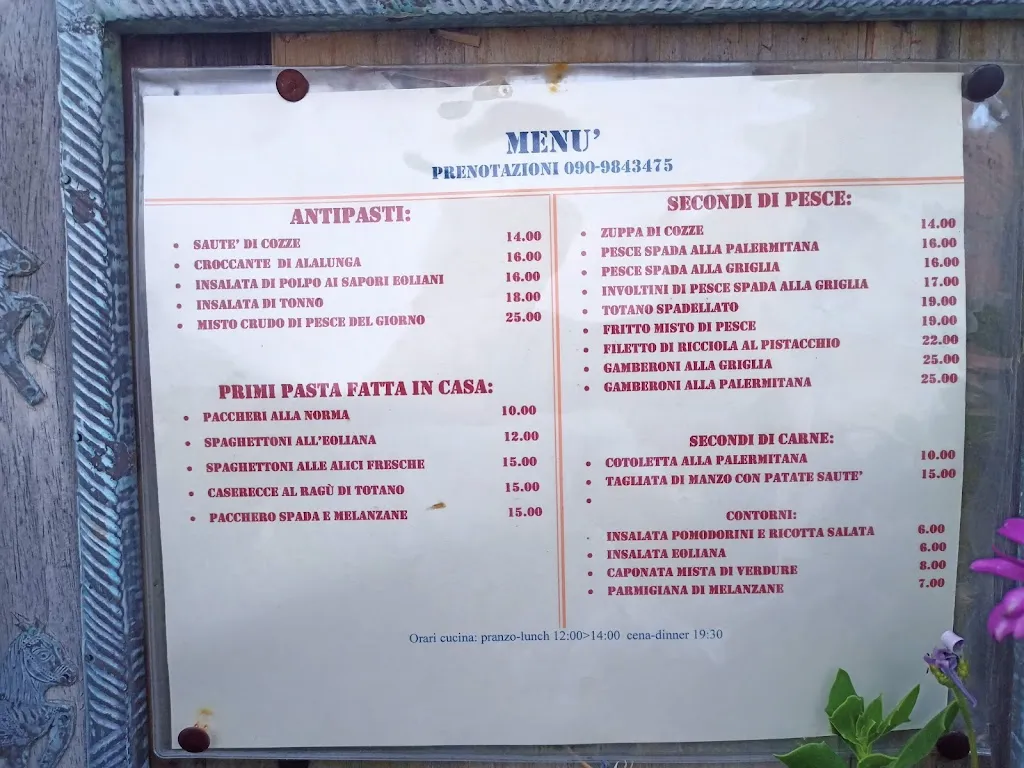 MENU'
PRENOTAZIONI 090-9843475
ANTIPASTI:
• SAUTE' DI COZZE 14.00
• CROCCANTE DI ALALUNGA 16.00
• INSALATA DI POLPO AI SAPORI EOLIANI 16.00
• INSALATA DI TONNO 18.00
• MISTO CRUDO DI PESCE DEL GIORNO 25.00
PRIMI PASTA FATTA IN CASA:
• PACCHERI ALLA NORMA 10.00
• SPAGHETTONI ALL'EOLIANA 12.00
• SPAGHETTONI ALLE ALICI FRESCHE 15.00
• CASERECCE AL RAGÙ DI TOTANO 15.00
• PACCHERO SPADA E MELANZANE 15.00
SECONDI DI PESCE:
• ZUPPA DI COZZE 14.00
• PESCE SPADA ALLA PALERMITANA 16.00
• PESCE SPADA ALLA GRIGLIA 16.00
• INVOLTINI DI PESCE SPADA ALLA GRIGLIA 17.00
• TOTANO SPADELLATO 19.00
• FRITTO MISTO DI PESCE 19.00
• FILETTO DI RICCIOLA AL PISTACCHIO 22.00
• GAMBERONI ALLA GRIGLIA 25.00
• GAMBERONI ALLA PALERMITANA 25.00
SECONDI DI CARNE:
• COTOLETTA ALLA PALERMITANA 10.00
• TAGLIATA DI MANZO CON PATATE SAUTE' 15.00
•
CONTORNI:
• INSALATA POMODORINI E RICOTTA SALATA 6.00
• INSALATA EOLIANA 6.00
• CAPONATA MISTA DI VERDURE 8.00
• PARMIGIANA DI MELANZANE 7.00
Orari cucina: pranzo-lunch 12:00>14:00 cena-dinner 19:30